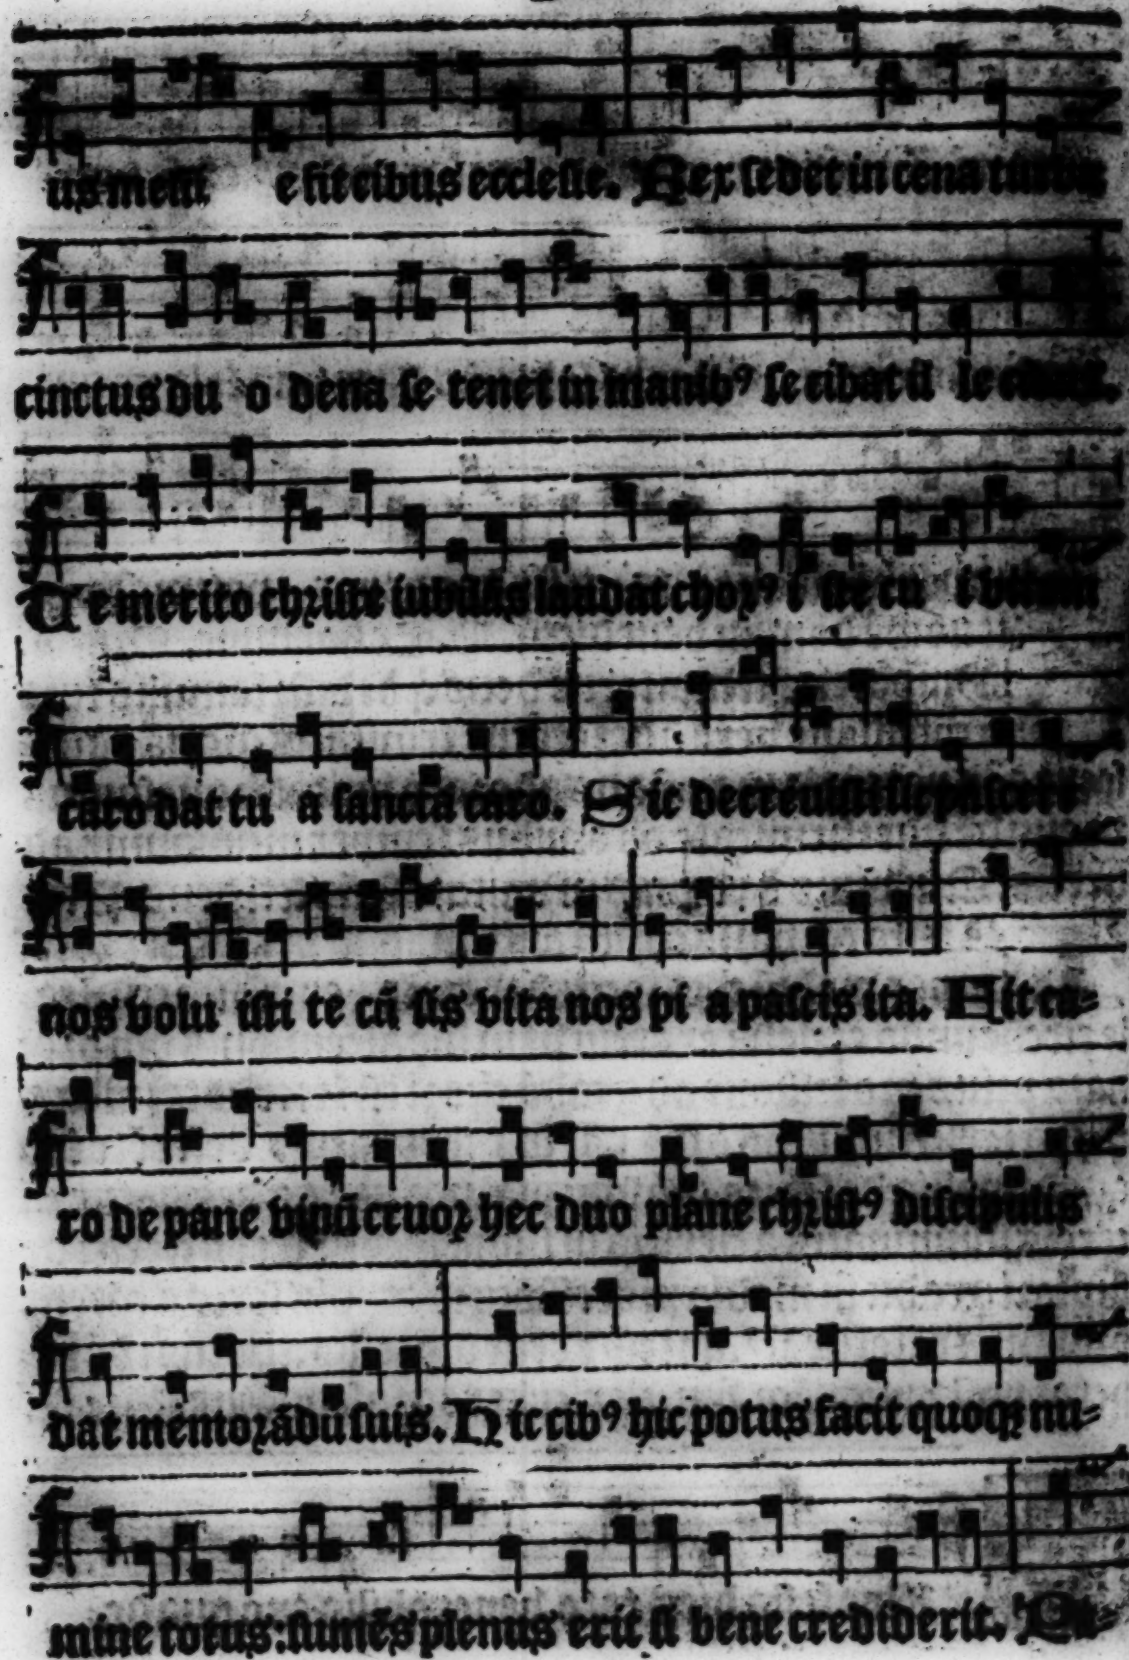 us messi e fit cibus ecclesie. Rex sedet in cena turba
cinctus du o dena se tenet in manibꝰ se cibat i se
Te merito christe iubilās laudat chorꝰ i ste cu i
caro dat tu a sancta caro. Sic decreuisti sic pascere
nos volu isti te cū sis vita nos pi a pascis ita. Hit ca⸗
ro de pane vinū cruor hec duo plane christꝰ discipulis
dat memorādū suis. Hic cibꝰ hic potus facit quoqꝫ nu⸗
mine totus: sumēs plenus erit si bene crediderit.